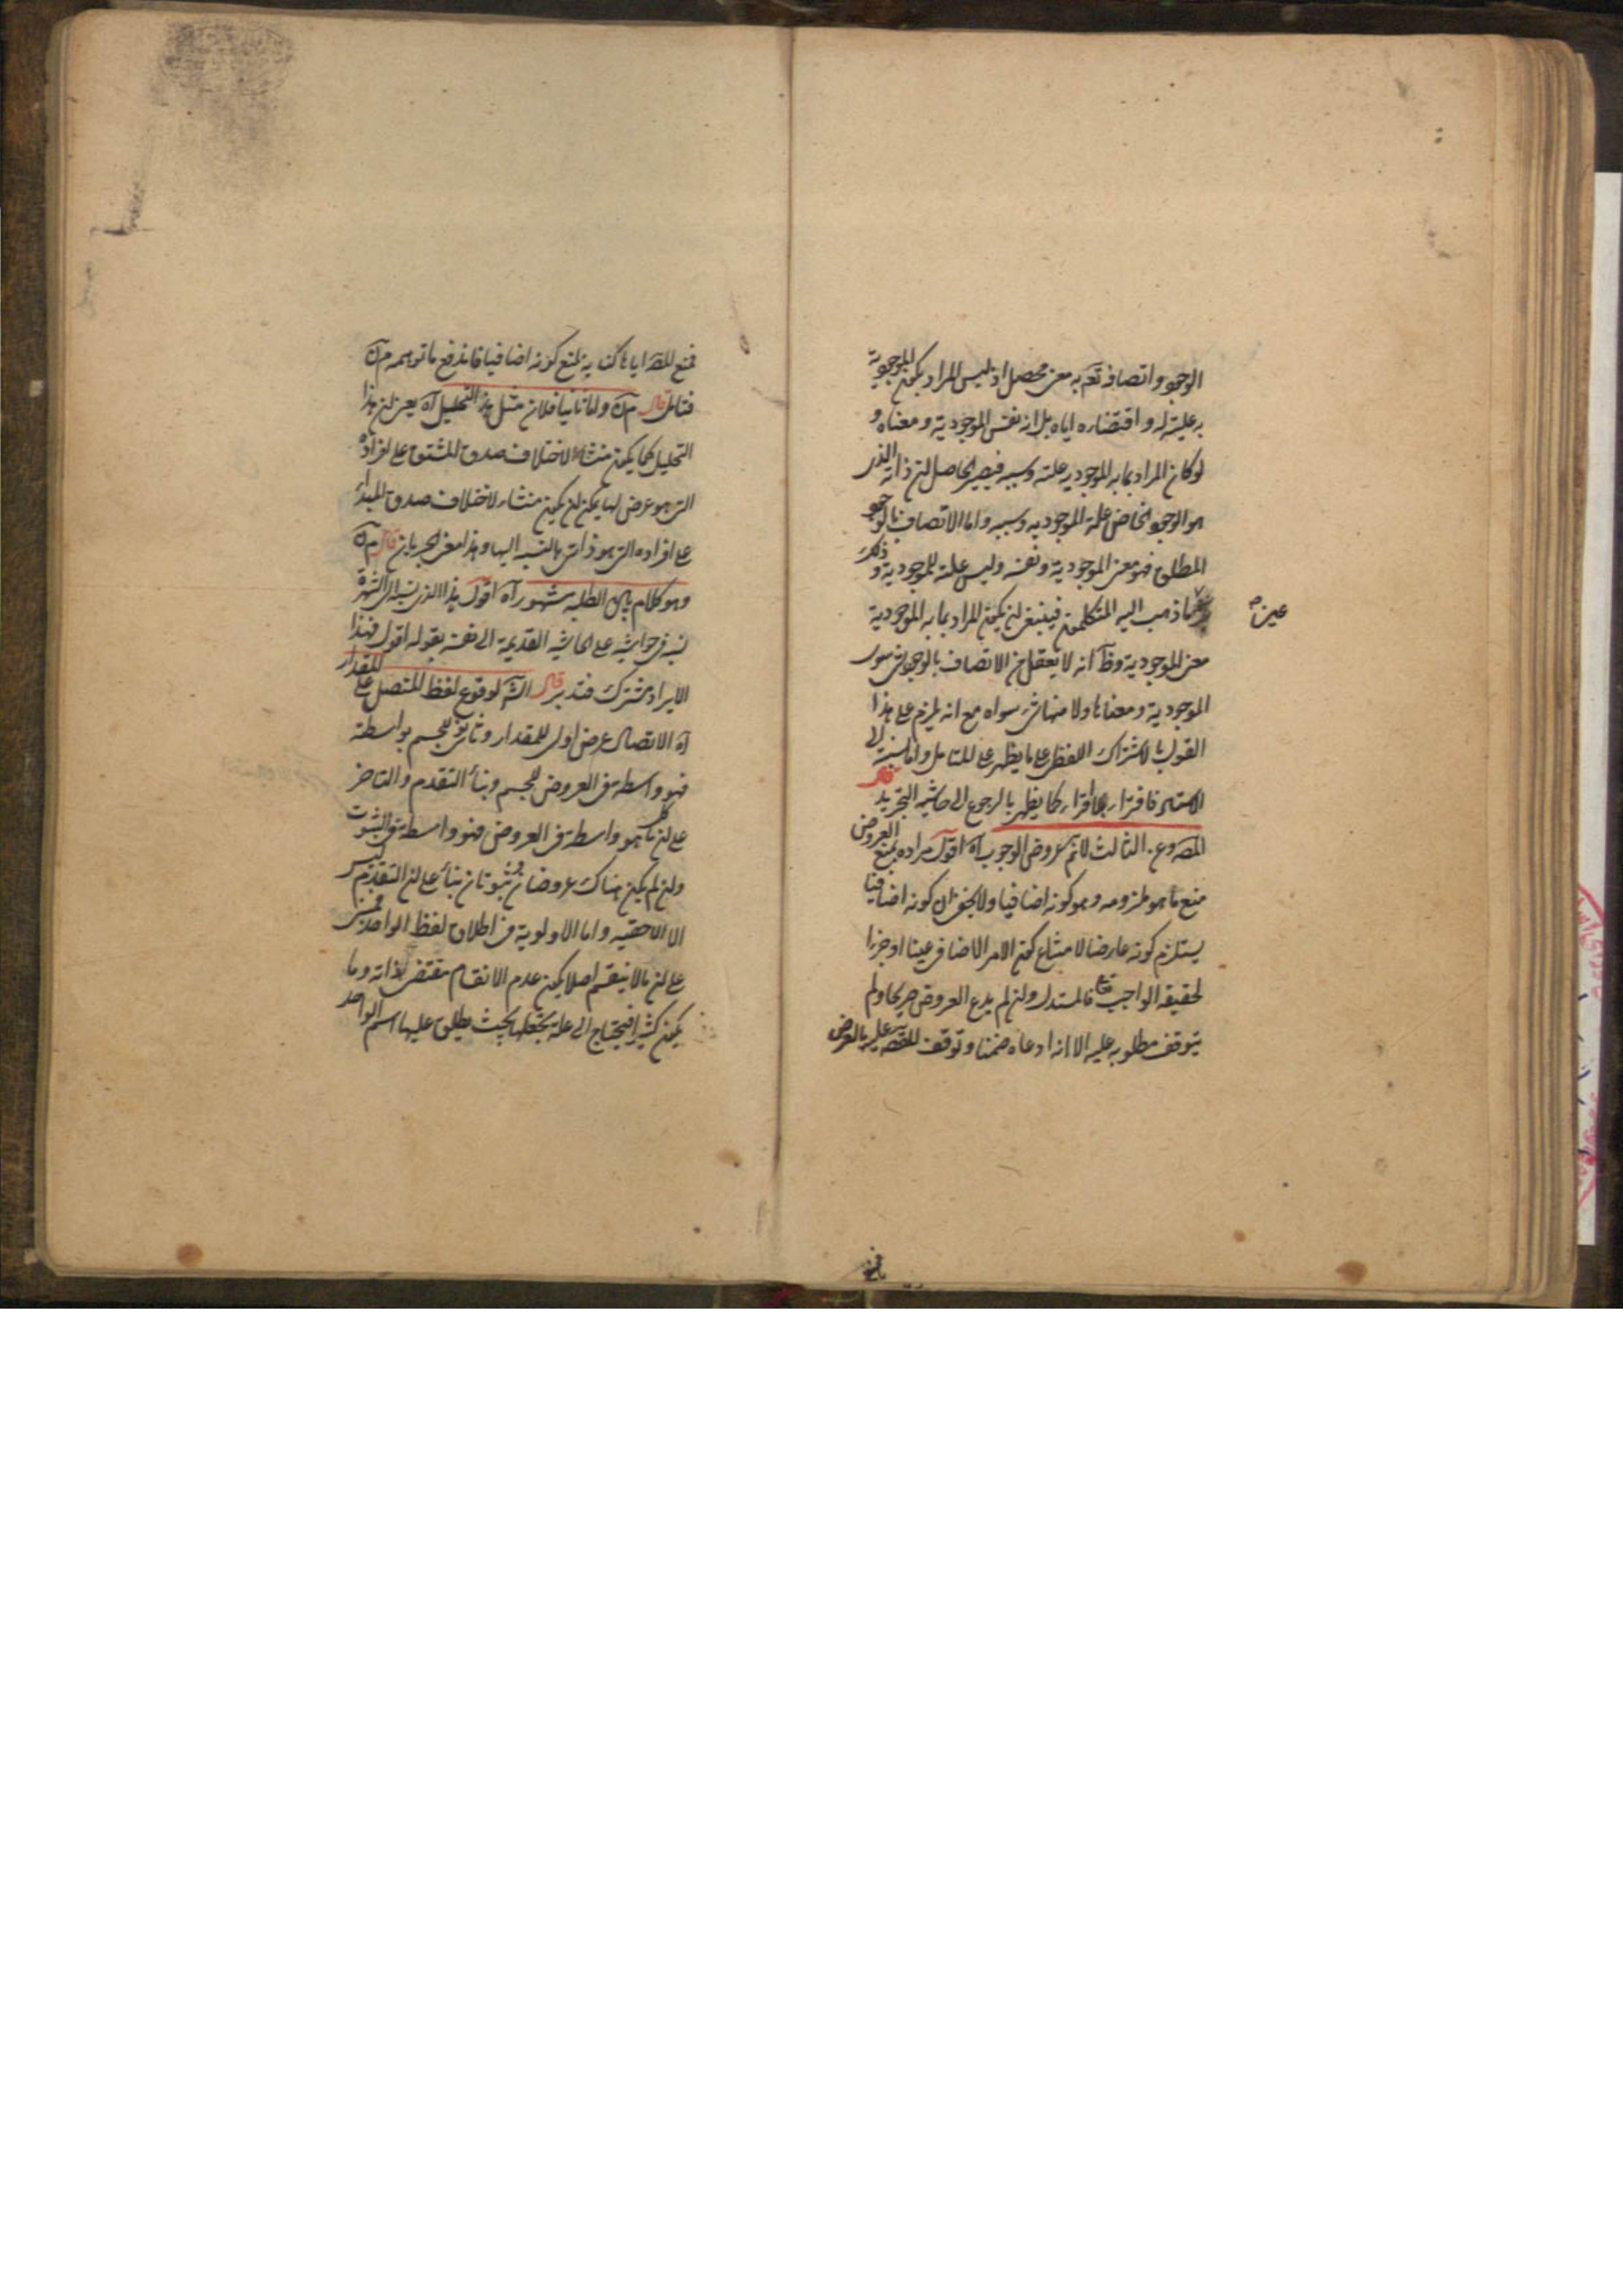 الوجود واتصافه تعم به معنى محصل اذ ليس المراد بكون الموجودية
به علية له واقتضاءه اياه بل انه نفس الموجودية ومعناه و
لو كان المراد بما به الموجودية علته وسببه فيصير الحاصل ان ذاته الذى
هو الوجود الخاص علة الموجودية وسببه واما الاتصاف بالوجود
المطلق فهو معنى الموجودية ونفسه وليس علة للموجودية وذلك
ما ذهب اليه المتكلمون فينبغى ان يكون المراد بما به الموجودية
عين
معنى الموجودية وظ انه لا يعقل من الاتصاف بالوجود شئ سوى
الموجودية ومعناها ولا منها شئ سواه مع انه يلزم على هذا
القول بالاشتراك اللفظى على ما يظهر على المتأمل واما نسبته الى
الاستاد فافتراء بلا افتراء كما يظهر بالرجوع الى حاشية التجريد قال
المص وع الثالث لا نم عروض الوجوب آه اقول مراده بمنع العروض
منع ما هو ملزومه وهو كونه اضافيا ولا يخفى ان كونه اضافيا
يستلزم كونه عارضا لامتناع كون الامر الاضافى عينا او جزءا
لحقيقة الواجب تع فالمستدل وان لم يدع العروض صريحا ولم
يتوقف مطلوبه عليه الا انه ادعاه ضمنا وتوقف عليه بالعرض
فمنع المص اياها كناية لمنع كونه اضافيا فاندفع ما توهمه م ق
فتأمل قال م ق واما ثانيا فلان مثل هذا التحليل آه يعنى ان هذا
التحليل كما يكون منشاء لاختلاف صدق المشتق على افراده
التى هو عرضى لها يمكن ان يكون منشاء لاختلاف صدق المبدأ
على افراده التى هو ذاتى بالنسبة اليها وهذا معنى الجريان قال م ق
وهو كلام بين الطلبة مشهور آه اقول هذا الذى نسبه الى الشهرة
نسبه فى حواشيه على الحاشية القديمة الى نفسه بقوله اقول فهذا
الايراد مشترك فتدبر قال الش لوقوع لفظ المتصل على المقدار
آه الاتصال عرض اولى للمقدار وثانوى للجسم بواسطة
فهو واسطة فى العروض للجسم وبناء التقدم والتاخر
على ان كلما هو واسطة فى العروض فهو واسطة فى الثبوت
وان لم يكن هناك عروضان وثبوتان بناء على ان التقدم ليس
الا الاحقية واما الاولوية فى اطلاق لفظ الواحد فمبنى
على ان ما لا ينقسم اصلا يكون عدم الانقسام مقتضى لذاته وما
يكون كثيرا فيحتاج الى علة تجعلها بحيث يطلق عليها اسم الواحد